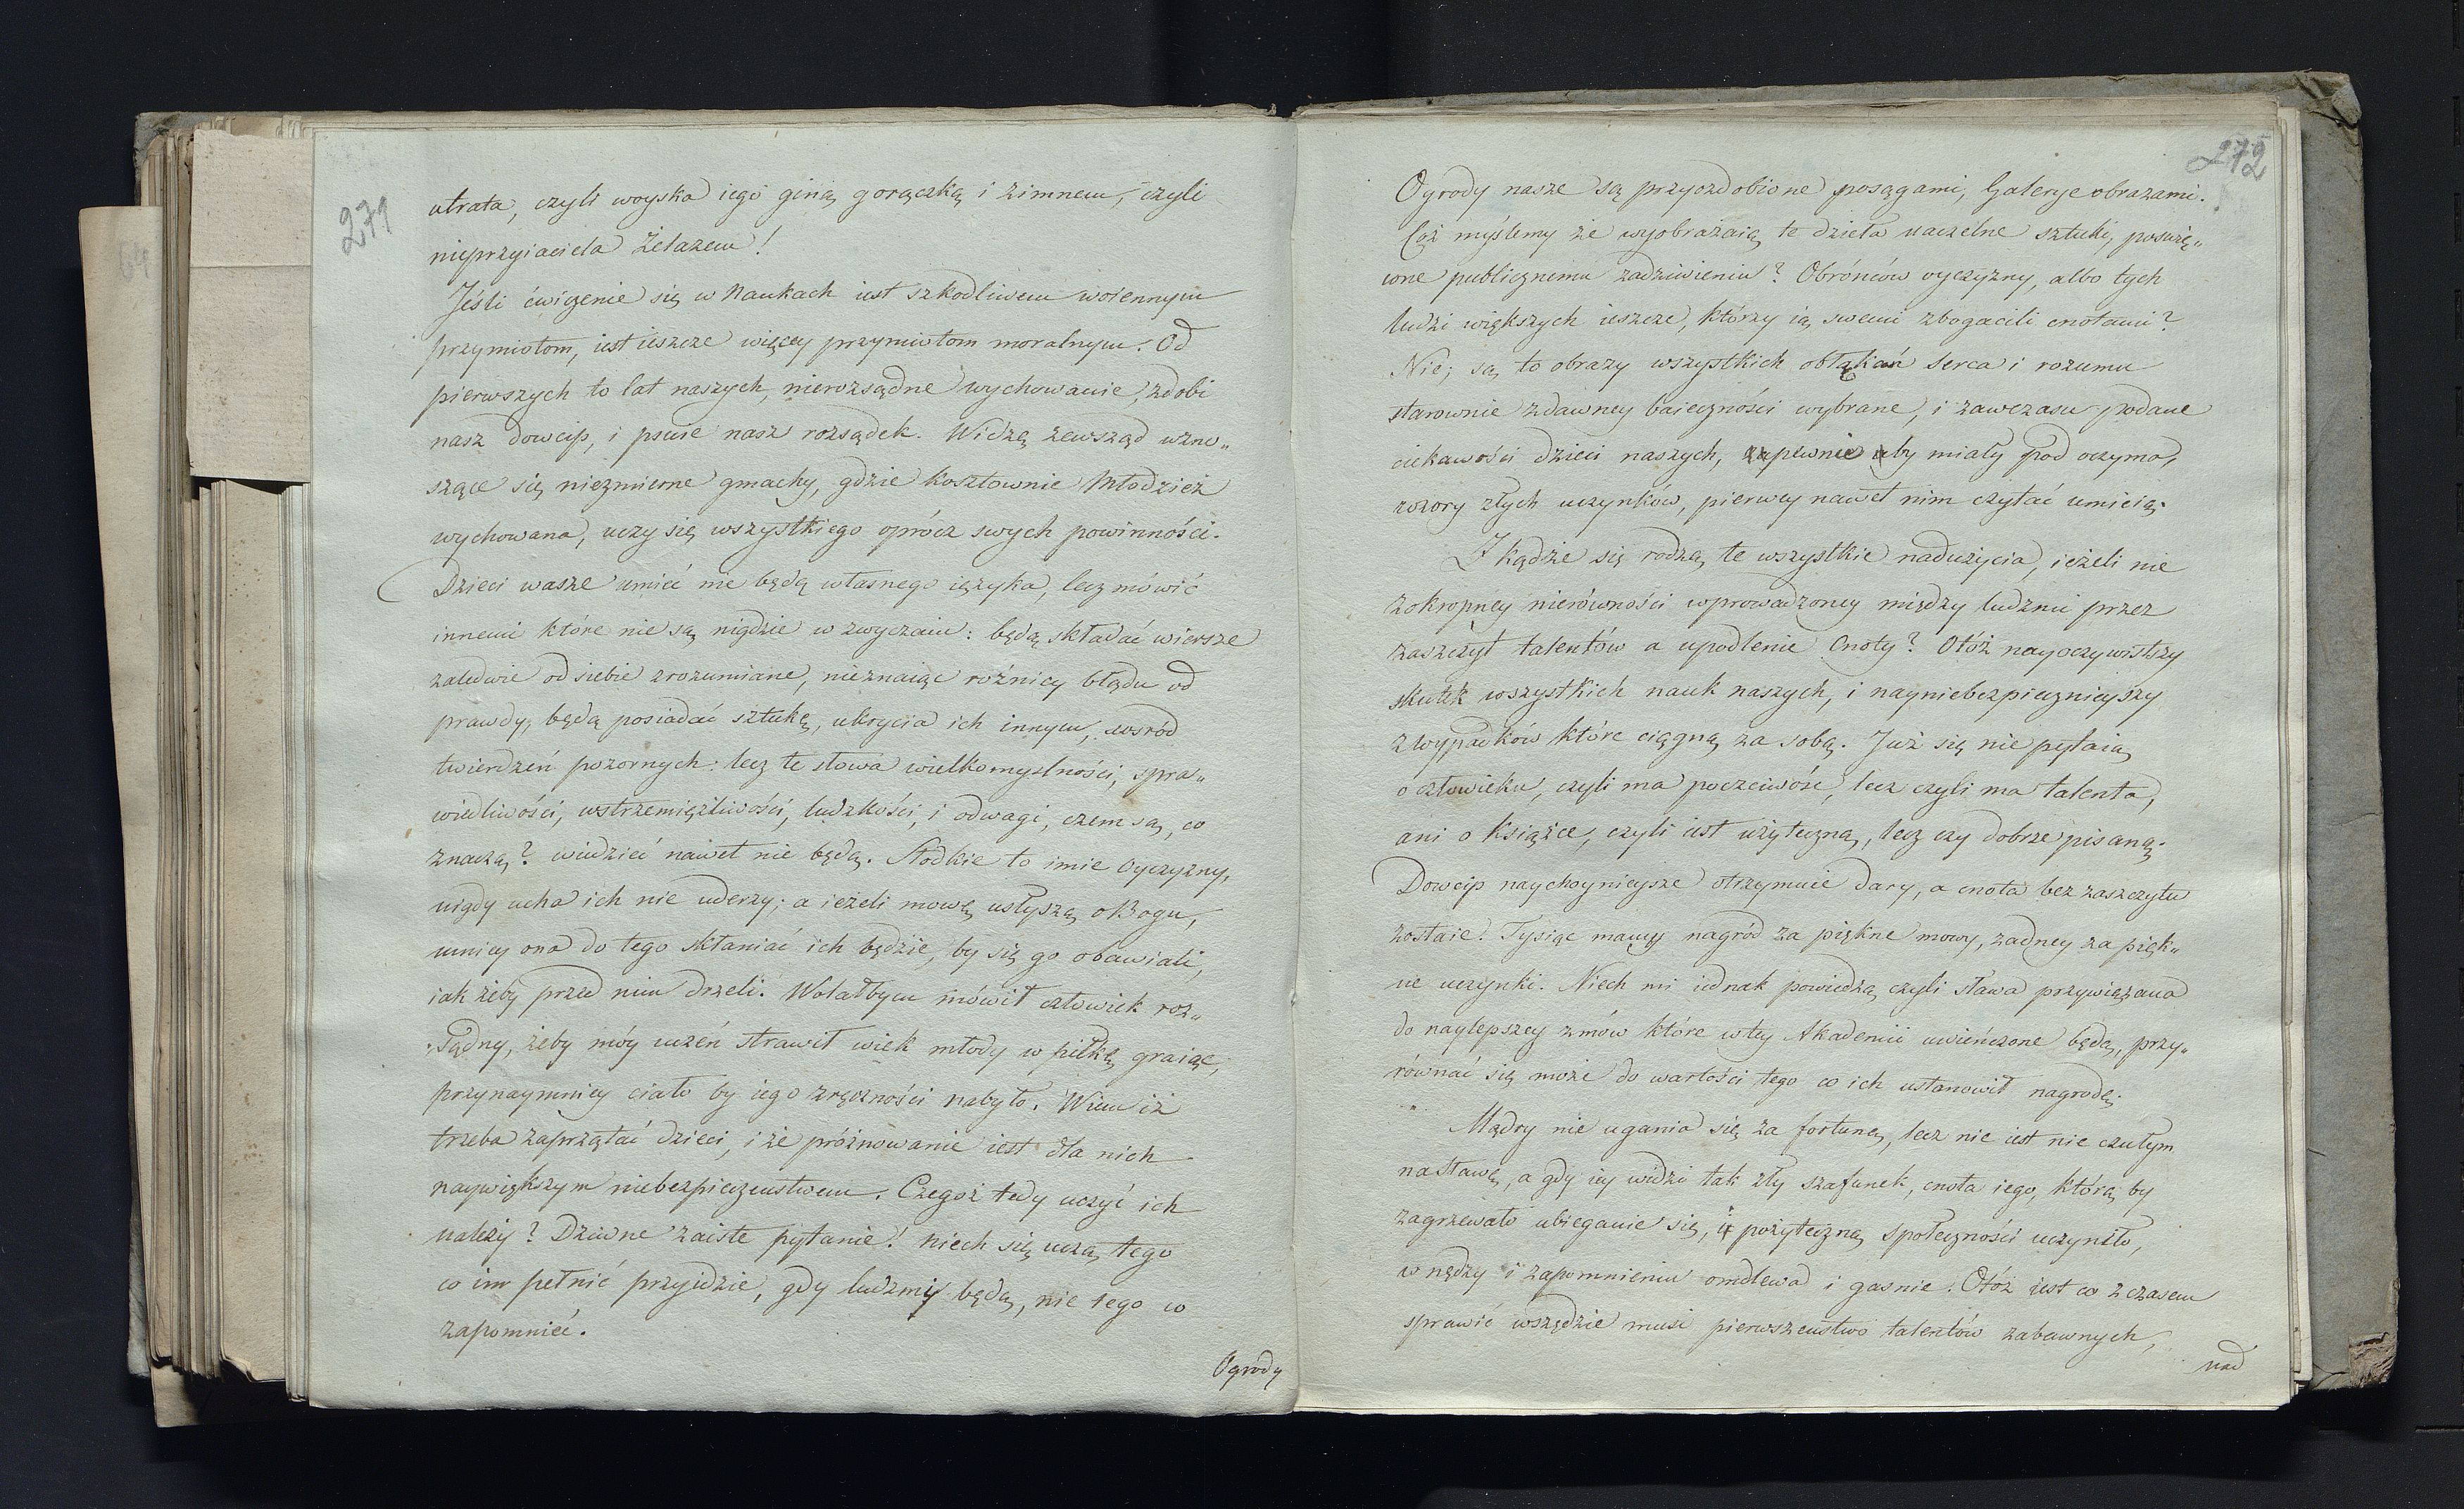 271
utrata, czyli woyska iego giną gorączką i zimnem, czyli
nieprzyiaciela żelazem!
Jeśli ćwiczenie się w Naukach iest szkodliwem woiennym
przymiotom, iest ieszcze więcey przymiotom moralnym. Od
pierwszych to lat naszych, nierozsądne wychowanie, zdobi
nasz dowcip, i psuie nasz rozsądek. Widzę zewsząd wzno„
szące się niezmierne gmachy, gdzie kosztownie Młodzież
wychowana, uczy się wszystkiego oprócz swych powinności.
Dzieci wasze umieć nie będą własnego ięzyka, lecz mówić
innemi które nie są nigdzie w zwyczaiu: będą składać wiersze
zaledwie od siebie zrozumiane, nieznaiąc rożnicy błędu od
prawdy, będą posiadać sztukę, ukrycia ich innym, wsród
twierdzeń pozornych: lecz te słowa wielkomyslności, spra„
wiedliwości, wstrzemięźliwości, ludzkości, i odwagi, czem są, co
znaczą? wiedzieć nawet nie będą. Słodkie to imie Oyczyzny,
nigdy ucha ich nie uderzy; a ieżeli mowę usłyszą o Bogu,
mniey ona do tego skłaniać ich będzie, by się go obawiali,
iak żeby przed nim drzeli. Wolałbym mówił człowiek roz„
„sądny, żeby móy uczeń strawił wiek młody w piłkę graiąc,
przynaymniey ciało by iego zręczności nabyło. Wiem iż
trzeba zaprzątać dzieci, i że próżnowanie iest dla nich
naywiększym niebezpieczeństwem. Czegoż tedy uczyć ich
należy? Dziwne zaiste pytanie! niech się uczą tego
co im pełnić przyidzie, gdy ludzmi będą, nie tego co
zapomnieć.
Ogrody
272
Ogrody nasze są przyozdobione posągami, Galerye obrazami.
Coż myślemy że wyobrażaią te dzieła naczelne sztuki, poswię„
cone publicznemu zadziwieniu? Obrońców oyczyzny, albo tych
ludzi większych ieszcze, którzy ią swemi zbogacili cnotami?
Nie; są to obrazy wszystkich obłąkań serca i rozumu
starownie zdawney baieczności wybrane, i zawczasu podane
ciekawości dzieci naszych, zapewnie aby miały pod oczyma,
wzory złych uczynków, pierwey nawet nim czytać umieią.
I kądże się rodzą te wszystkie nadużycia, ieżeli nie
zokropney nierówności wprowadzoney między ludzmi przez
zaszczyt talentów a upodlenie Cnoty? Otóż nayoczywistszy
skutek wszystkich nauk naszych, i nayniebezpiecznieyszy
z wypadków które ciągną za sobą. Już się nie pytaią
o człowieku, czyli ma poczciwość, lecz czyli ma talenta,
ani o Książce, czyli iest użyteczną, lecz czy dobrze pisaną.
Dowcip naychoynieysze otrzymuie dary, a cnota bez zaszczytu
zostaie. Tysiąc mamy nagród za piękne mowy, żadney za pięk„
ne uczynki. Niech mi iednak powiedzą czyli sława przywiązana
do naylepszey zmów które wtey Akademii uwieńczone będą, przy„
równać się może do wartości tego co ich ustanowił nagrodę.
Mądry nie ugania się za fortuną, lecz nie iest nie czułym
na sławę, a gdy iey widzi tak zły szafunek, cnota iego, którą by
zagrzewało ubieganie się, i pożyteczną społeczności uczyniło,
w nędzy i zapomnieniu omdlewa i gasnie. Otóż iest co z czasem
sprawić wszędzie musi pierwszeństwo talentów zabawnych,
nad